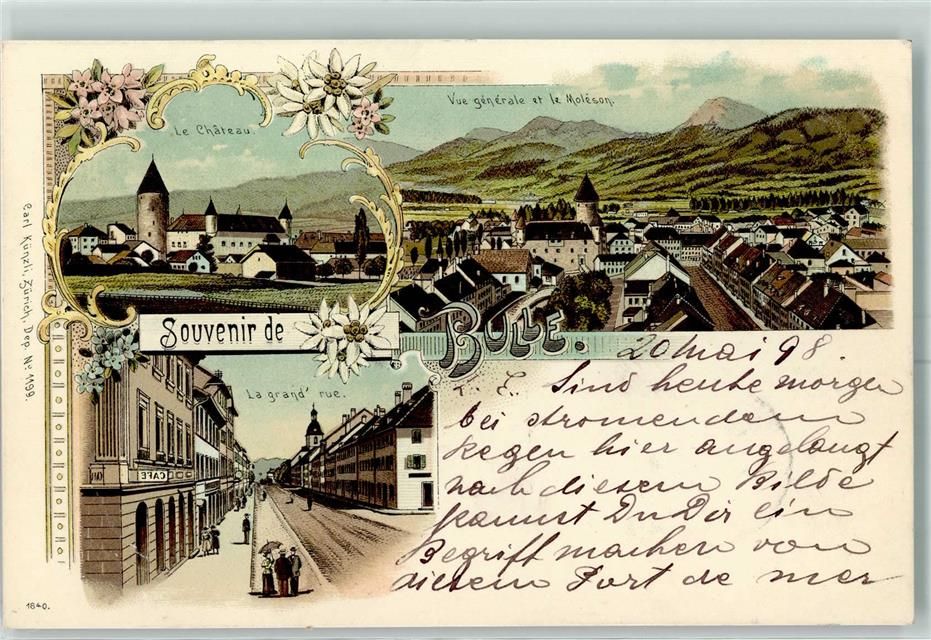 Le Château.
Vue générale et le Moléson.
Carl Künzli, Zürich, Dep. No. 1199.
Souvenir de
BULLE.
La grand' rue.
CAFÉ
20 Mai 98.
Sind heute morgen
bei stromendem
Regen hier angelangt
nach diesem Bilde
kannst Du Dir ein
Begriff machen von
diesem Port de mer
1840.